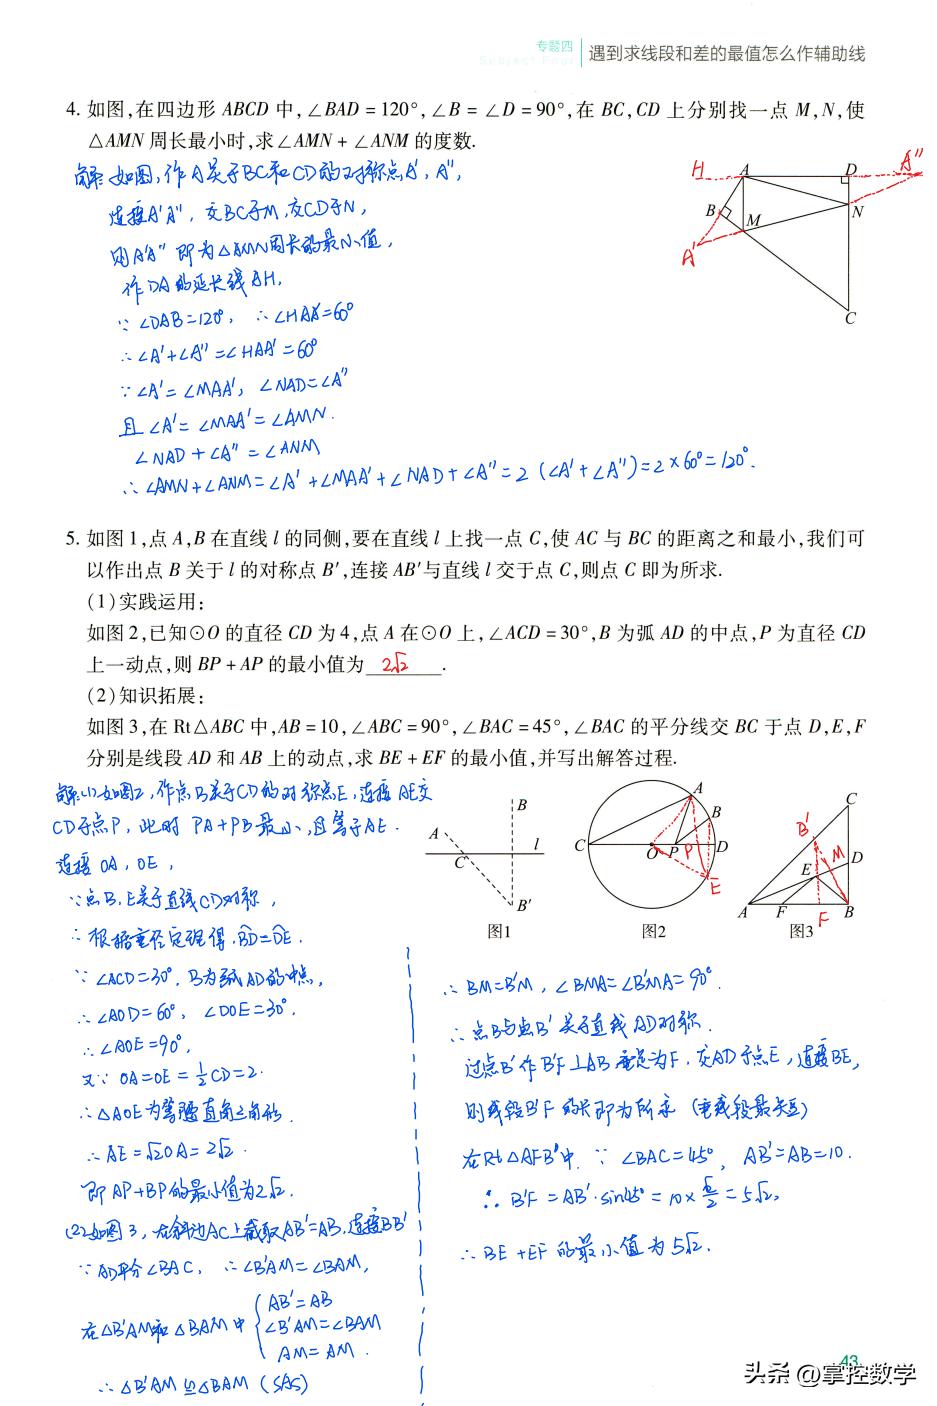 专题四
Subject Four
遇到求线段和差的最值怎么作辅助线
4. 如图,在四边形 ABCD 中,∠BAD = 120°,∠B = ∠D = 90°,在 BC,CD 上分别找一点 M,N,使
△AMN 周长最小时,求∠AMN + ∠ANM 的度数.
解:如图,作A关于BC和CD的对称点A′,A″,
连接A′A″,交BC于M,交CD于N,
则A′A″即为△AMN周长的最小值,
作DA的延长线AH,
∵∠DAB=120°,∴∠HAA′=60°
∴∠A′+∠A″=∠HAA′=60°
∵∠A′=∠MAA′,∠NAD=∠A″
且∠A′=∠MAA′=∠AMN.
∠NAD+∠A″=∠ANM
∴∠AMN+∠ANM=∠A′+∠MAA′+∠NAD+∠A″=2(∠A′+∠A″)=2×60°=120°.
H A D A″
B M N
A′
C
5. 如图 1,点 A,B 在直线 l 的同侧,要在直线 l 上找一点 C,使 AC 与 BC 的距离之和最小,我们可
以作出点 B 关于 l 的对称点 B′,连接 AB′与直线 l 交于点 C,则点 C 即为所求.
(1)实践运用:
如图 2,已知⊙O 的直径 CD 为 4,点 A 在⊙O 上,∠ACD = 30°,B 为弧 AD 的中点,P 为直径 CD
上一动点,则 BP + AP 的最小值为 2√2 .
(2)知识拓展:
如图 3,在 Rt△ABC 中,AB = 10,∠ABC = 90°,∠BAC = 45°,∠BAC 的平分线交 BC 于点 D,E,F
分别是线段 AD 和 AB 上的动点,求 BE + EF 的最小值,并写出解答过程.
A B l C B′
图1
A B C O P P D E
图2
C B′ M D E A F F B
图3
解:(1)如图2,作点B关于CD的对称点E,连接AE交
CD于点P,此时PA+PB最小,且等于AE.
连接OA,OE,
∵点B,E关于直线CD对称,
∴根据垂径定理得,BD=DE.
∵∠ACD=30°,B为弧AD的中点,
∴∠AOD=60°,∠DOE=30°.
∴∠AOE=90°,
又∵OA=OE=1/2CD=2.
∴△AOE为等腰直角三角形.
∴AE=√2OA=2√2.
即AP+BP的最小值为2√2.
(2)如图3,在斜边AC上截取AB′=AB,连接BB′
∵AD平分∠BAC,∴∠B′AM=∠BAM,
在△B′AM和△BAM中
AB′=AB
∠B′AM=∠BAM
AM=AM.
∴△B′AM≌△BAM(SAS)
∴BM=B′M,∠BMA=∠B′MA=90°.
∴点B与点B′关于直线AD对称.
过点B′作B′F⊥AB垂足为F,交AD于点E,连接BE,
则线段B′F的长即为所求(垂线段最短)
在Rt△AFB′中,∵∠BAC=45°,AB′=AB=10.
∴B′F=AB′·sin45°=10×√2/2=5√2,
∴BE+EF的最小值为5√2.
43
头条 @掌控数学